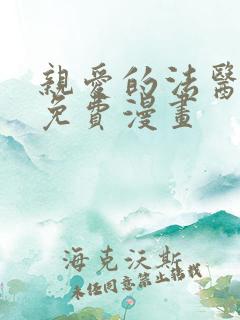 親愛的法醫
免費漫畫
海克沃斯
未经同意禁止转载